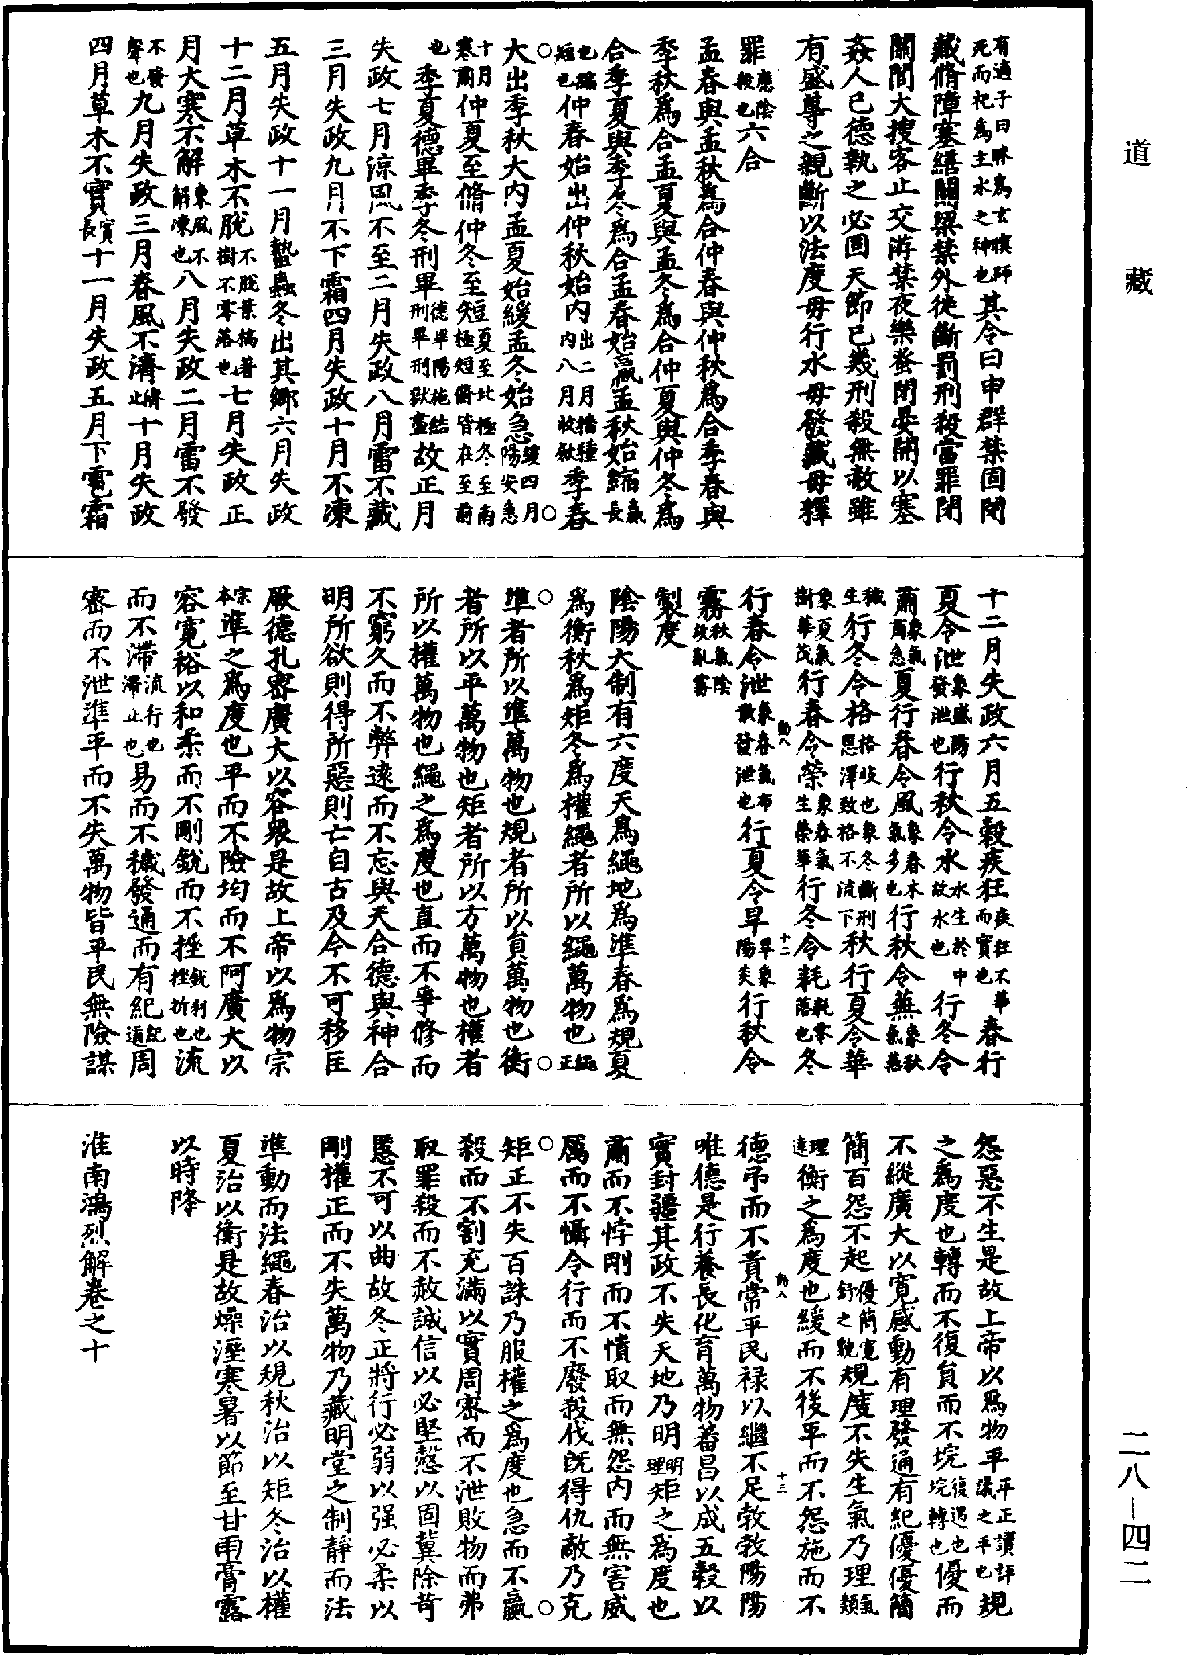 道藏
有適子曰昧爲玄㝠師死而祀爲主水之神也其令曰申群禁固閉
藏脩障塞繕關梁禁外徙斷罰刑殺當罪閉
關閭大搜客止交游禁夜樂蚤閉晏開以塞
姦人已德執之必固天節已幾刑殺無赦雖
有盛尊之親斷以法度毋行水毋發藏毋釋
罪應陰殺也六合
孟春與孟秋爲合仲春與仲秋爲合季春與
季秋爲合孟夏與孟冬爲合仲夏與仲冬爲
合季夏與季冬爲合孟春始贏孟秋始縮贏長也縮短也
仲春始出仲秋始内出二月播種内八月收斂季春
大出季秋大内孟夏始緩孟冬始急緩四月陽安急十月寒肅
仲夏至脩仲冬至短夏至北極冬至南極短脩皆在至前也
季夏德畢季冬刑畢德畢陽施結刑畢刑獄盡故正月
失政七月涼風不至二月失政八月雷不藏
三月失政九月不下霜四月失政十月不凍
五月失政十一月蟄蟲冬出其鄉六月失政
十二月草木不脫不脫葉槁著樹不零落也七月失政正
月大寒不解東風不解凍也八月失政二月雷不發
不發聲也九月失政三月春風不濟濟止十月失政
四月草木不實實長十一月失政五月下雹霜
十二月失政六月五穀疾狂疾狂不華而實也春行
夏令泄象盛陽發泄也行秋令水水生於申故水也行冬令
肅象氣肅急夏行春令風象春木氣多也行秋令蕪象秋氣蕪穢
生行冬令格格收也象冬斷刑恩澤致格不流下秋行夏令華
象夏氣樹華茂行春令榮象春氣生榮華行冬令耗象耗零落也冬
行春令泄象春氣布散發泄也行夏令旱旱象陽炎行秋令
霧秋氣陰故亂霧
製度
陰陽大制有六度天爲繩地爲準春爲規夏
爲衡秋爲矩冬爲權繩者所以繩萬物也繩正
準者所以準萬物也規者所以員萬物也衡
者所以平萬物也矩者所以方萬物也權者
所以權萬物也繩之爲度也直而不爭修而
不窮久而不弊遠而不忘與天合德與神合
明所欲則得所惡則亡自古及今不可移匡
厥德孔密廣大以容眾是故上帝以爲物宗
宗本準之爲度也平而不險均而不阿廣大以
容寛裕以和柔而不剛銳而不挫銳利也挫折也流
而不滯流行也滯止也易而不穢發通而有紀紀道周
密而不泄準平而不失萬物皆平民無險謀
怨惡不生是故上帝以爲物平平正讀評議之平也規
之爲度也轉而不復員而不垸復遇也垸轉也優而
不縱廣大以寬感動有理發通有紀優優簡
簡百怨不起優簡寛舒之貌規度不失生氣乃理氣類
理達衡之爲度也緩而不後平而不怨施而不
德弔而不責常平民禄以繼不足敦敦陽陽
唯德是行養長化育萬物蕃昌以成五穀以
實封疆其政不失天地乃明明理矩之爲度也
肅而不悖剛而不憒取而無怨内而無害威
厲而不懾令行而不廢殺伐既得仇敵乃克
矩正不失百誅乃服權之爲度也急而不贏
殺而不割充滿以實周密而不泄敗物而弗
取罪殺而不赦誠信以必堅慤以固冀除苛
慝不可以曲故冬正將行必弱以强必柔以
剛權正而不失萬物乃藏明堂之制靜而法
準動而法繩春治以規秋治以矩冬治以權
夏治以衡是故燥溼寒暑以節至甘雨膏露
以時降
淮南鴻烈解卷之十
二八—四二